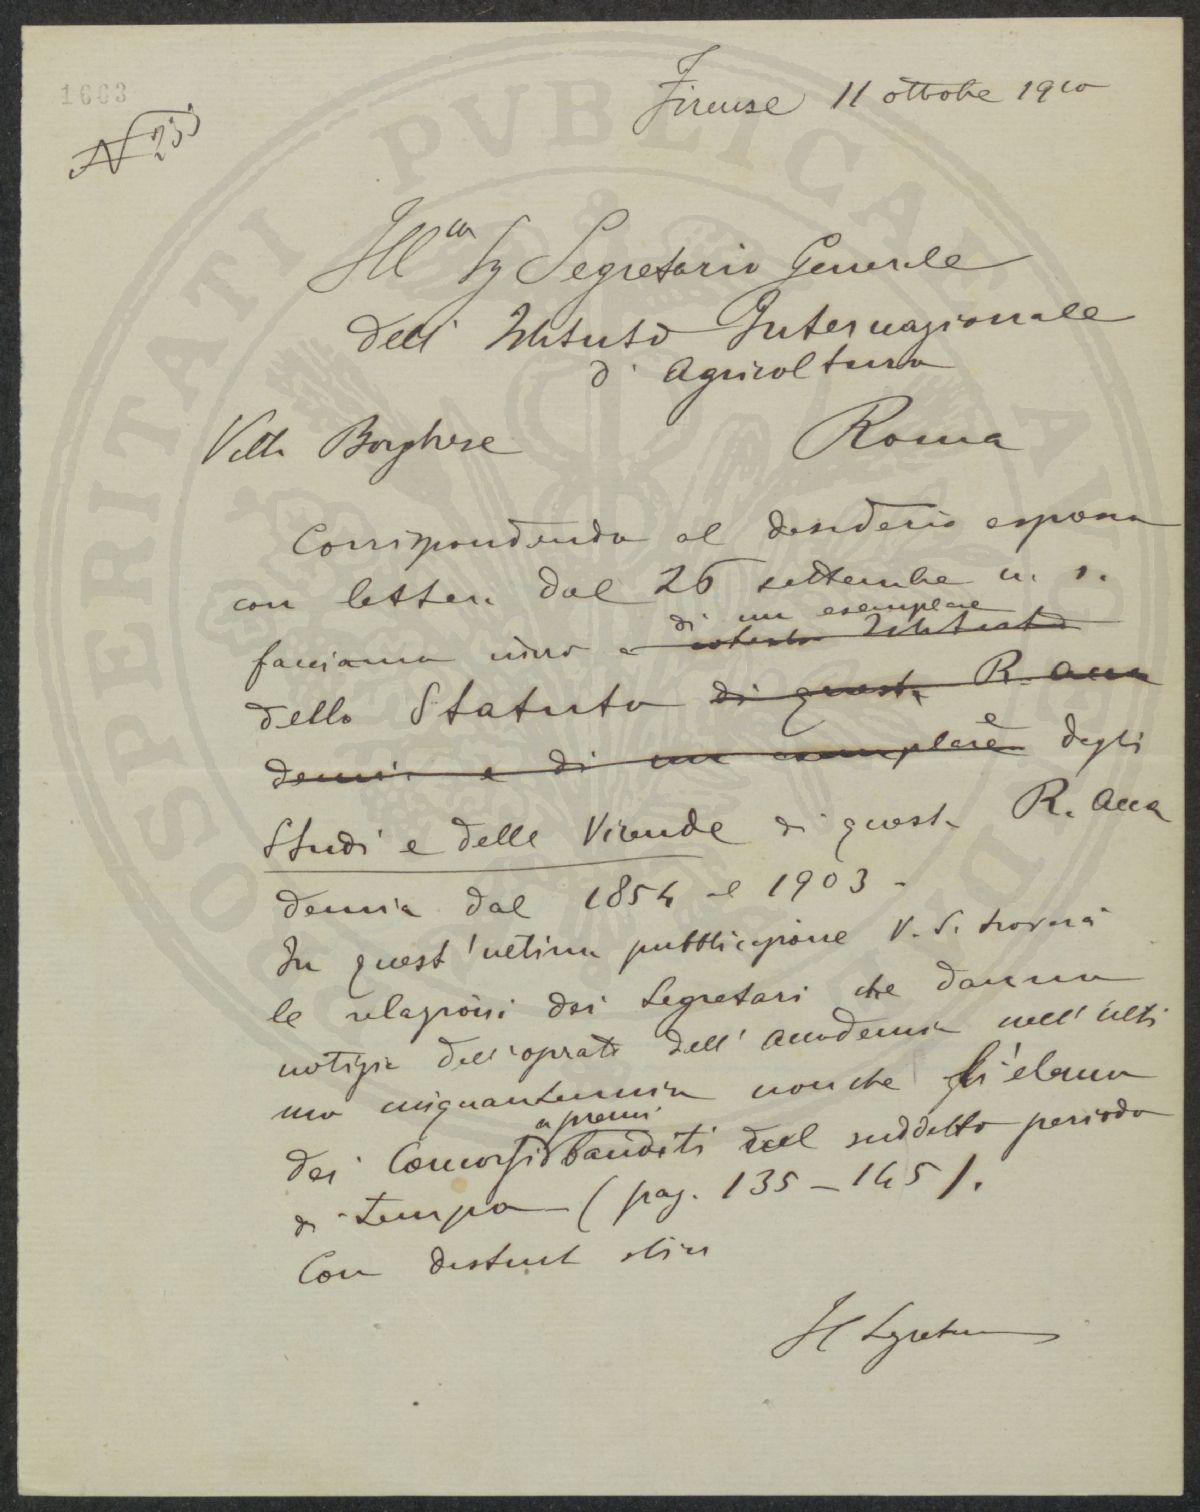 1663
N 255
Firenze 11 ottobre 1910
Ill.mo Sg Segretario Generale
dell' Istituto Internazionale
d' Agricoltura
Villa Borghese Roma
Corrispondendo al desiderio espresso
con lettera dal 26 settembre u. s.
di un esemplare
facciamo invio a cotesto Istituto
dello Statuto di questa R. Acca
demia e di un esemplare e degli
Studi e delle Vicende di questa R. Acca
demia dal 1854 al 1903 -
In quest'ultima pubblicazione V. S. troverà
le relazioni dei Segretari che danno
notizia dell'operato dell' Accademia nell' ulti
mo cinquantennio nonche l'elenco
a premi
dei Concorsi banditi nel suddetto periodo
di tempo (pag. 135 - 145).
Con distint stima
Il Segretario
PROSPERITATI PVBLICAE AVGENDAE